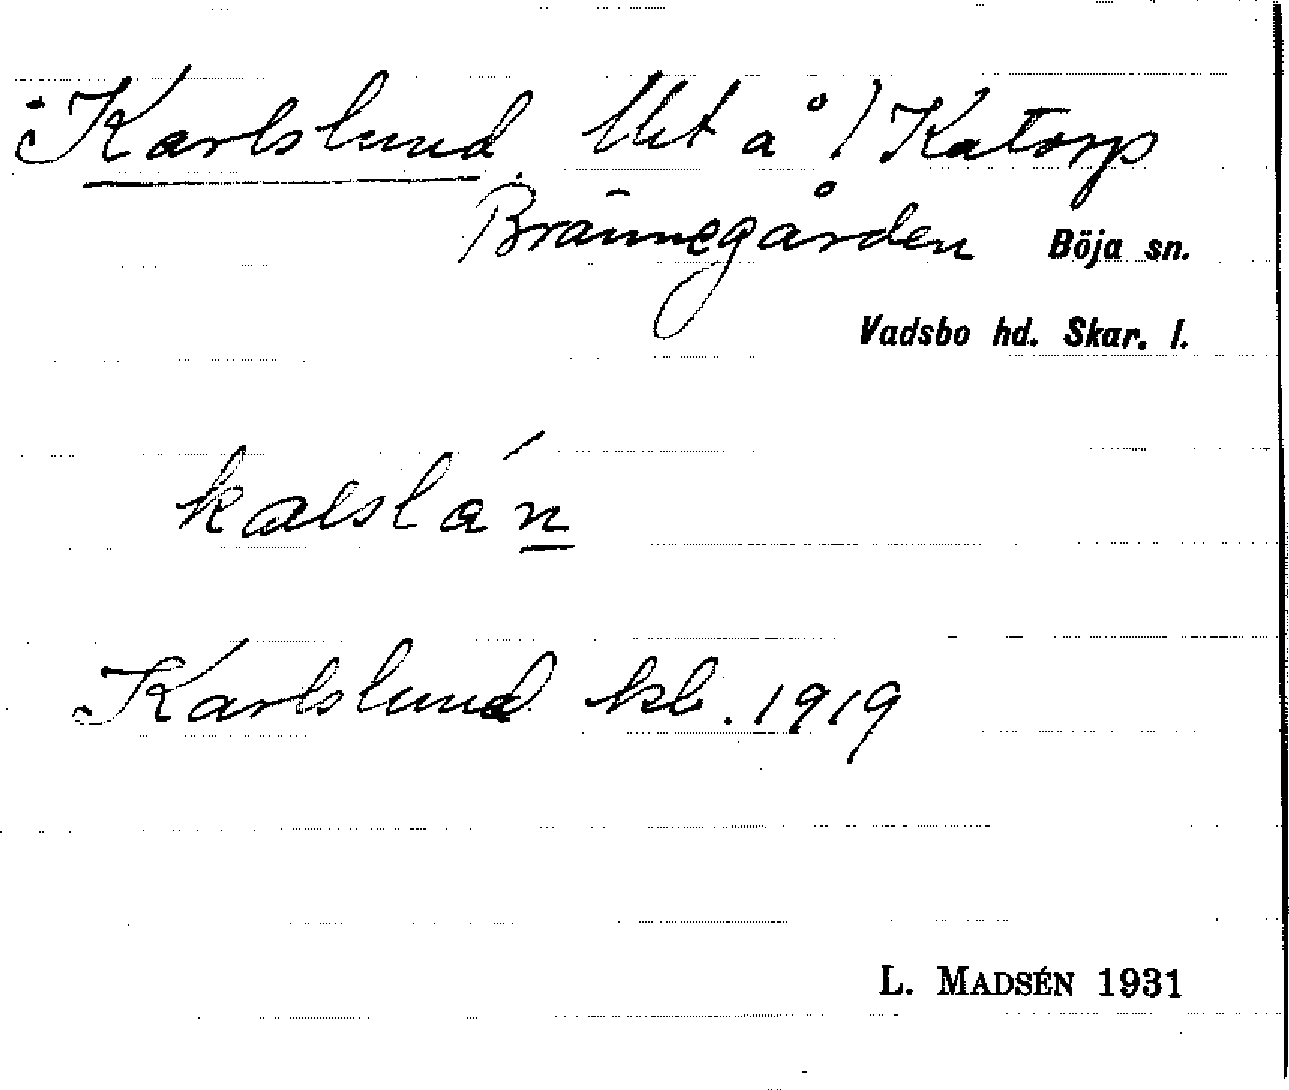 Karlslund lht å 1/ Katorp
Brännegården Böja sn.
Vadsbo hd. Skar. l.
kalslán
Karlslund kb. 1919
L. MADSÉN 1931